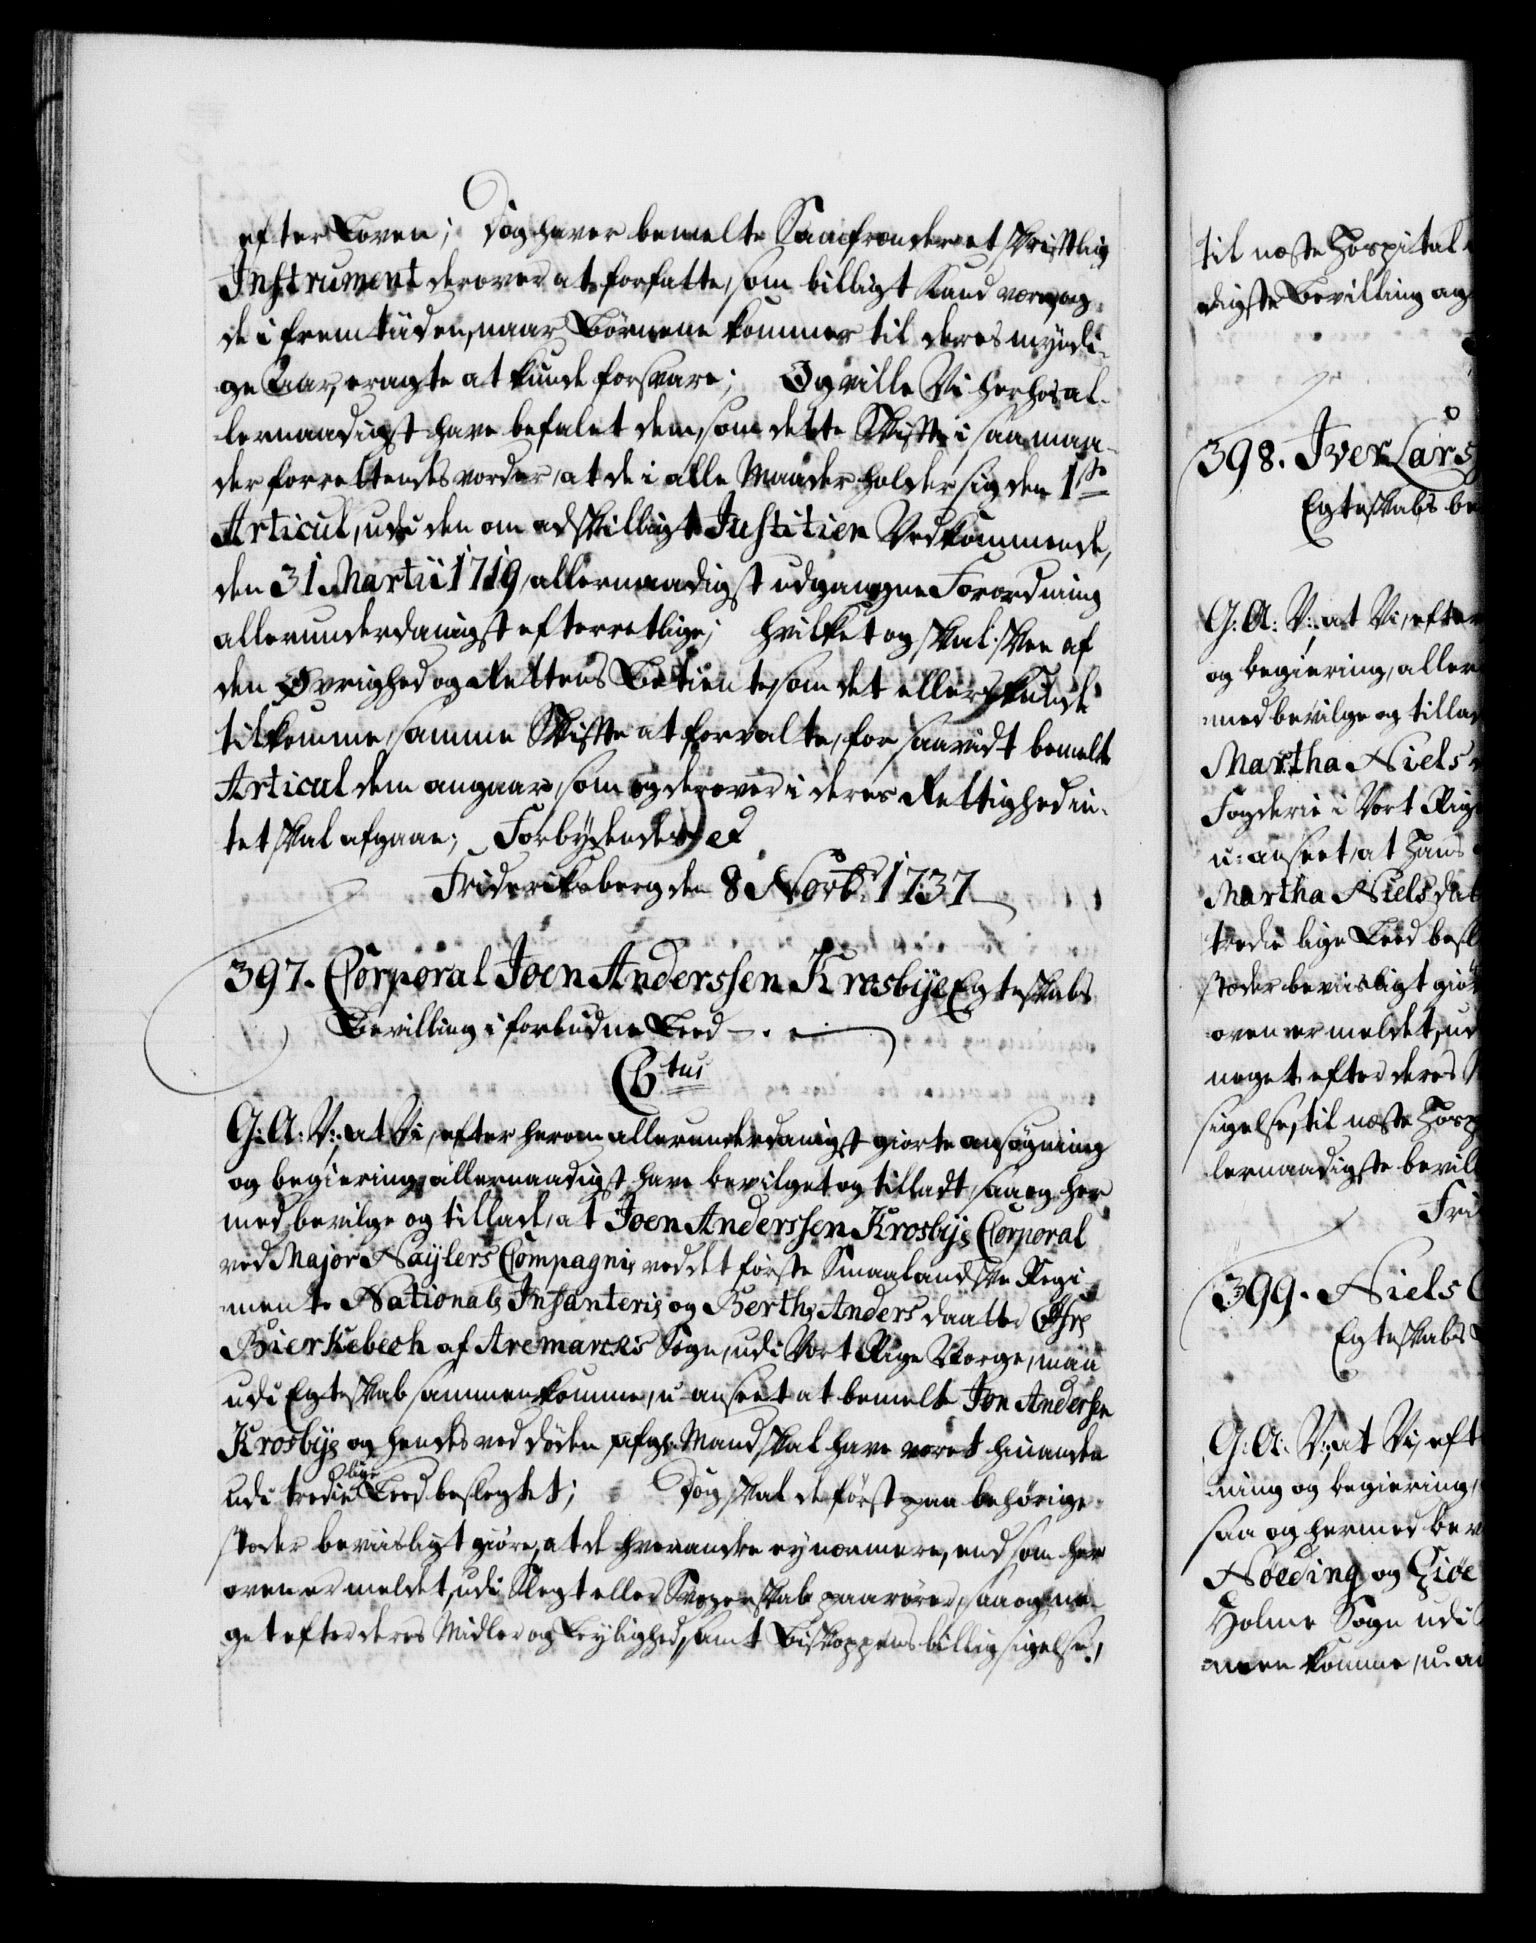 efter Loven; Dog haver bemelte Samfrender et skriftlig
Instrument derover at forfatte, som billigt kand være, og
de i fremtiiden, naar Börnene kommer til deres myndi-
ge Aar, eragte at kunde forsvare; Og ville Vi herhos al-
lernaadigst have befalet dem, som dette Skifte i saa maa-
der forrettendes vorder, at de i alle Maader holder sig den 1ste
Articul, udi den om adskilligt Justitien Vedkommende,
den 31 Martii 1719 allernaadigst udgangne Forordning
allerunderdanigst efterretlig; hvilket og skal skee af
den Øvrighed og Rettens Betiente, som det ellers kunde
tilkomme, samme Skifte at forvalte, for saavidt bemelte
Articul dem angaar, som og derover i deres Rettighed in-
tet skal afgaae; Forbydendes etc
Friderichsberg den 8 Novbr 1737
397. Corporal Joen Anderssen Krosbye Egteskabs
Bevilling i forbudne Leed
Ctus
G: A: V:, at Vi, efter herom allerunderdanigst giorte ansøgning
og begiering, allernaadigst have bevilget og tilladt, saa og her
med bevilge og tillade, at Joen Anderssen Krosbye Corporal
ved Major Naylers Compagnie ved det förste Smaalandske Regi-
mente Nationale Infanterie og Berthe Anders daatter Öfre
Bierkebech af Aremarks Sogn, udi Vort Rige Norge, maa
udi Egteskab sammenkomme, u-anseet at bemelte Jon Anderssen
Krosbye og hendes ved döden afg: Mand skal have været hinanden
udi tredie lige Leed beslegtet; Dog skal de först paa behörige
stæder beviisligt giöre, at de hverandre ey nærmere, end som her
oven er meldet, udi Slegt eller Svogerskab paarörer, saa og no-
get efter deres Midler og Leylighed, samt Biskoppens billig sigelse,
til næste Hospital
digste Bevilling og
398. Iver Lars
Egteskabs be
G: A: V:, at Vi, efter
og begiering, aller
med bevilge og tillad
Martha Niels d
Fogderie i Vort Rig
u-anseet, at hans
Martha Niels dat
tredie lige Leed besl
stæder beviisligt giör
oven er meldet, ud
noget efter deres M
sigelse, til næste Hosp
lernaadigste bevill
Fri
399. Niels
Egteskabs
G: A: V:, at Vi, eft
ning og begiering,
saa og hermed bev
Nöeding og
Holme Sogn udi
men komme, u-an